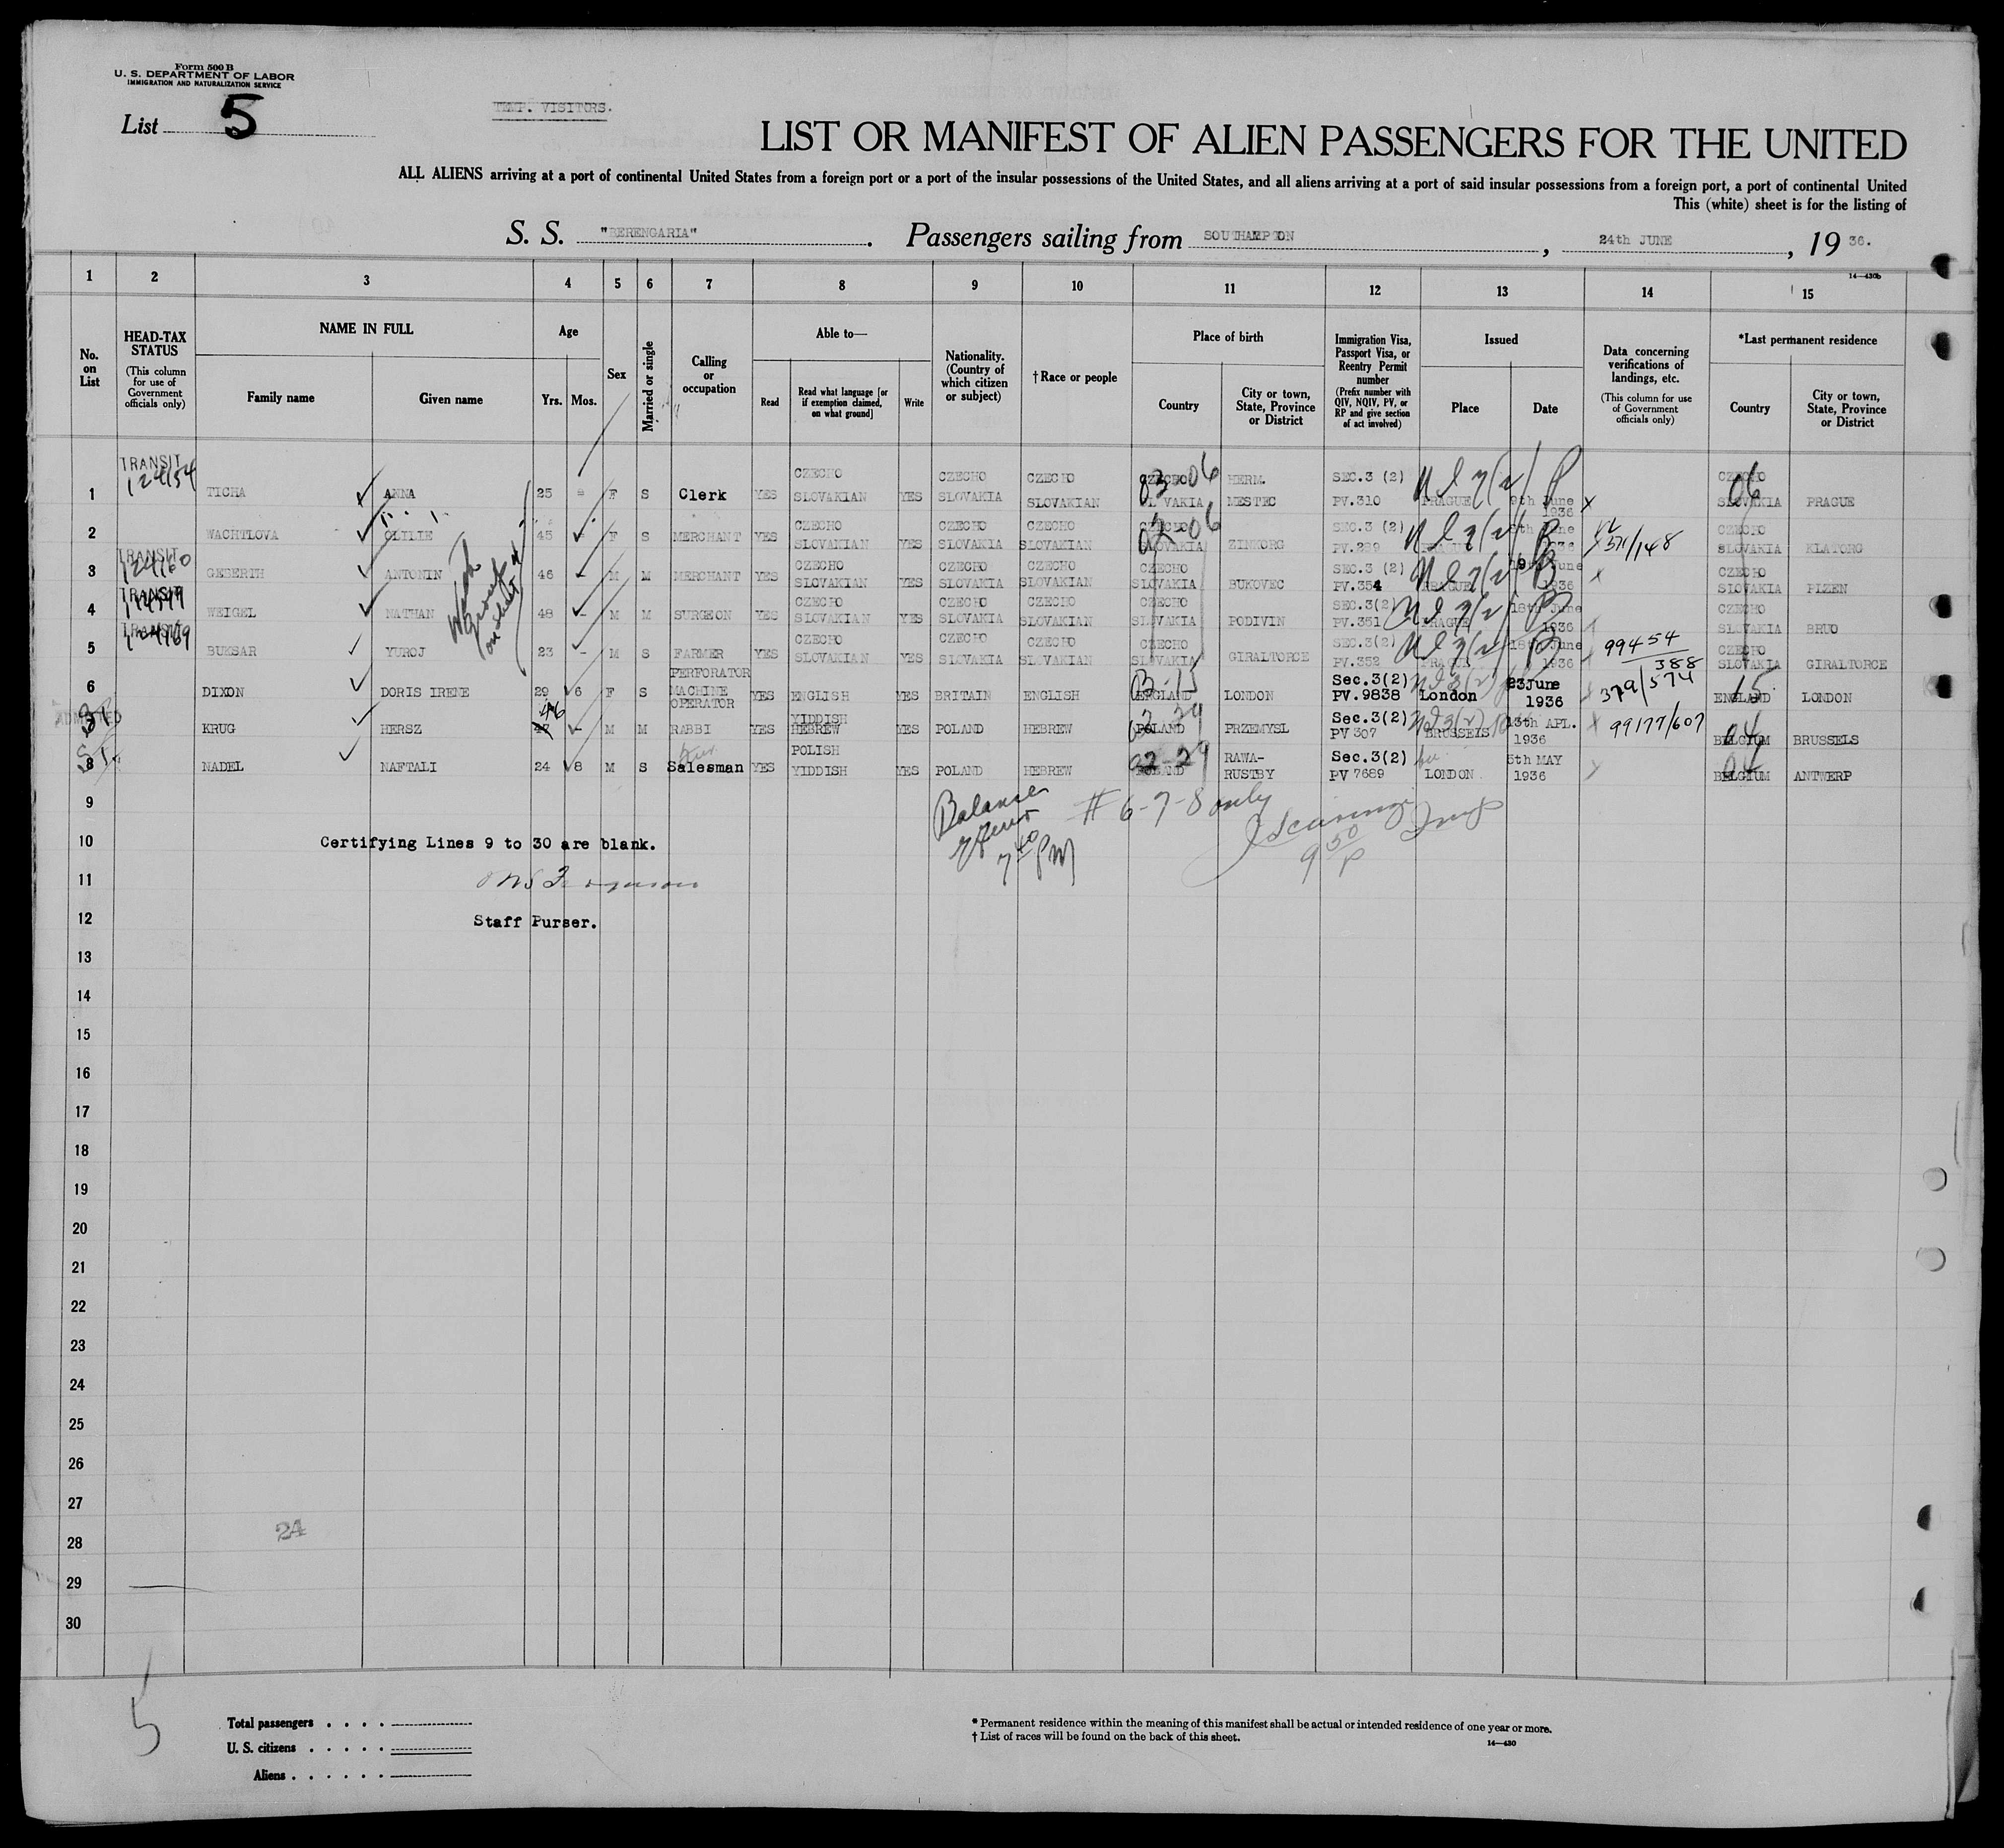 Form 500 B
U. S. DEPARTMENT OF LABOR
IMMIGRATION AND NATURALIZATION SERVICE
List 5
TEMP. VISITORS.
LIST OR MANIFEST OF ALIEN PASSENGERS FOR THE UNITED
ALL ALIENS arriving at a port of continental United States from a foreign port or a port of the insular possessions of the United States, and all aliens arriving at a port of said insular possessions from a foreign port, a port of continental United
This (white) sheet is for the listing of
S. S. "BERENGARIA". Passengers sailing from SOUTHAMPTON, 24th JUNE, 19 36.
14—430b
1 2 3 4 5 6 7 8 9 10 11 12 13 14 15
No. on List
HEAD-TAX STATUS
(This column for use of Government officials only)
NAME IN FULL
Family name
Given name
Age
Yrs. Mos.
Sex
Married or single
Calling or occupation
Able to—
Read
Read what language [or if exemption claimed, on what ground]
Write
Nationality. (Country of which citizen or subject)
† Race or people
Place of birth
Country
City or town, State, Province or District
Immigration Visa, Passport Visa, or Reentry Permit number
(Prefix number with QIV, NQIV, PV, or RP and give section of act involved)
Issued
Place
Date
Data concerning verifications of landings, etc.
(This column for use of Government officials only)
*Last permanent residence
Country
City or town, State, Province or District
TRANSIT 124154
1 TICHA ANNA 25 - F S Clerk YES CZECHO SLOVAKIAN YES CZECHO SLOVAKIA CZECHO SLOVAKIAN CZECHO SLOVAKIA 03-06 HERM. MESTEC SEC.3 (2) PV.310 PRAGUE 9th June 1936 X CZECHO SLOVAKIA 06 PRAGUE
2 WACHTLOVA 45 - F S MERCHANT YES CZECHO SLOVAKIAN YES CZECHO SLOVAKIA CZECHO SLOVAKIAN CZECHO SLOVAKIA 02-06 SEC.3 (2) June 1936 CZECHO SLOVAKIA
TRANSIT 124160
3 ANTONIN 46 - M M MERCHANT YES CZECHO SLOVAKIAN YES CZECHO SLOVAKIA CZECHO SLOVAKIAN CZECHO SLOVAKIA BUKOVEC SEC.3 (2) PV.354 PRAGUE June 1936 X CZECHO SLOVAKIA PLZEN
TRANSIT
4 WEIGEL NATHAN 48 - M M SURGEON YES CZECHO SLOVAKIAN YES CZECHO SLOVAKIA CZECHO SLOVAKIAN CZECHO SLOVAKIA PODIVIN SEC.3(2) PV.351 PRAGUE 18th June 1936 CZECHO SLOVAKIA BRUO
TRANSIT 124169
5 BUKSAR YUROJ 23 - M S FARMER YES CZECHO SLOVAKIAN YES CZECHO SLOVAKIA CZECHO SLOVAKIAN CZECHO SLOVAKIA GIRALTORCE SEC.3(2) PV.352 PRAGUE 18th June 1936 99454/388 CZECHO SLOVAKIA GIRALTORCE
6 DIXON DORIS IRENE 29 6 F S PERFORATOR MACHINE OPERATOR YES ENGLISH YES BRITAIN ENGLISH ENGLAND LONDON Sec.3(2) PV.9838 London 23 June 1936 379/574 ENGLAND 15 LONDON
ADMITTED
KRUG HERSZ 46 - M M RABBI YES YIDDISH HEBREW YES POLAND HEBREW POLAND PRZEMYSL Sec.3(2) PV 307 BRUSSELS 13th APL. 1936 X 99177/607 BELGIUM 04 BRUSSELS
8 NADEL NAFTALI 24 8 M S Salesman YES POLISH YIDDISH YES POLAND HEBREW POLAND 02-29 RAWA-RUSTBY Sec.3(2) PV 7689 LONDON 5th MAY 1936 BELGIUM 04 ANTWERP
9
# 6-7-8 only
10 Certifying Lines 9 to 30 are blank.
7 40 PM
9 50 P
11
12 Staff Purser.
13
14
15
16
17
18
19
20
21
22
23
24
25
26
27
24
28
29
30
5
Total passengers . . . .
U. S. citizens . . . . .
Aliens . . . . . .
* Permanent residence within the meaning of this manifest shall be actual or intended residence of one year or more.
† List of races will be found on the back of this sheet.
14—430